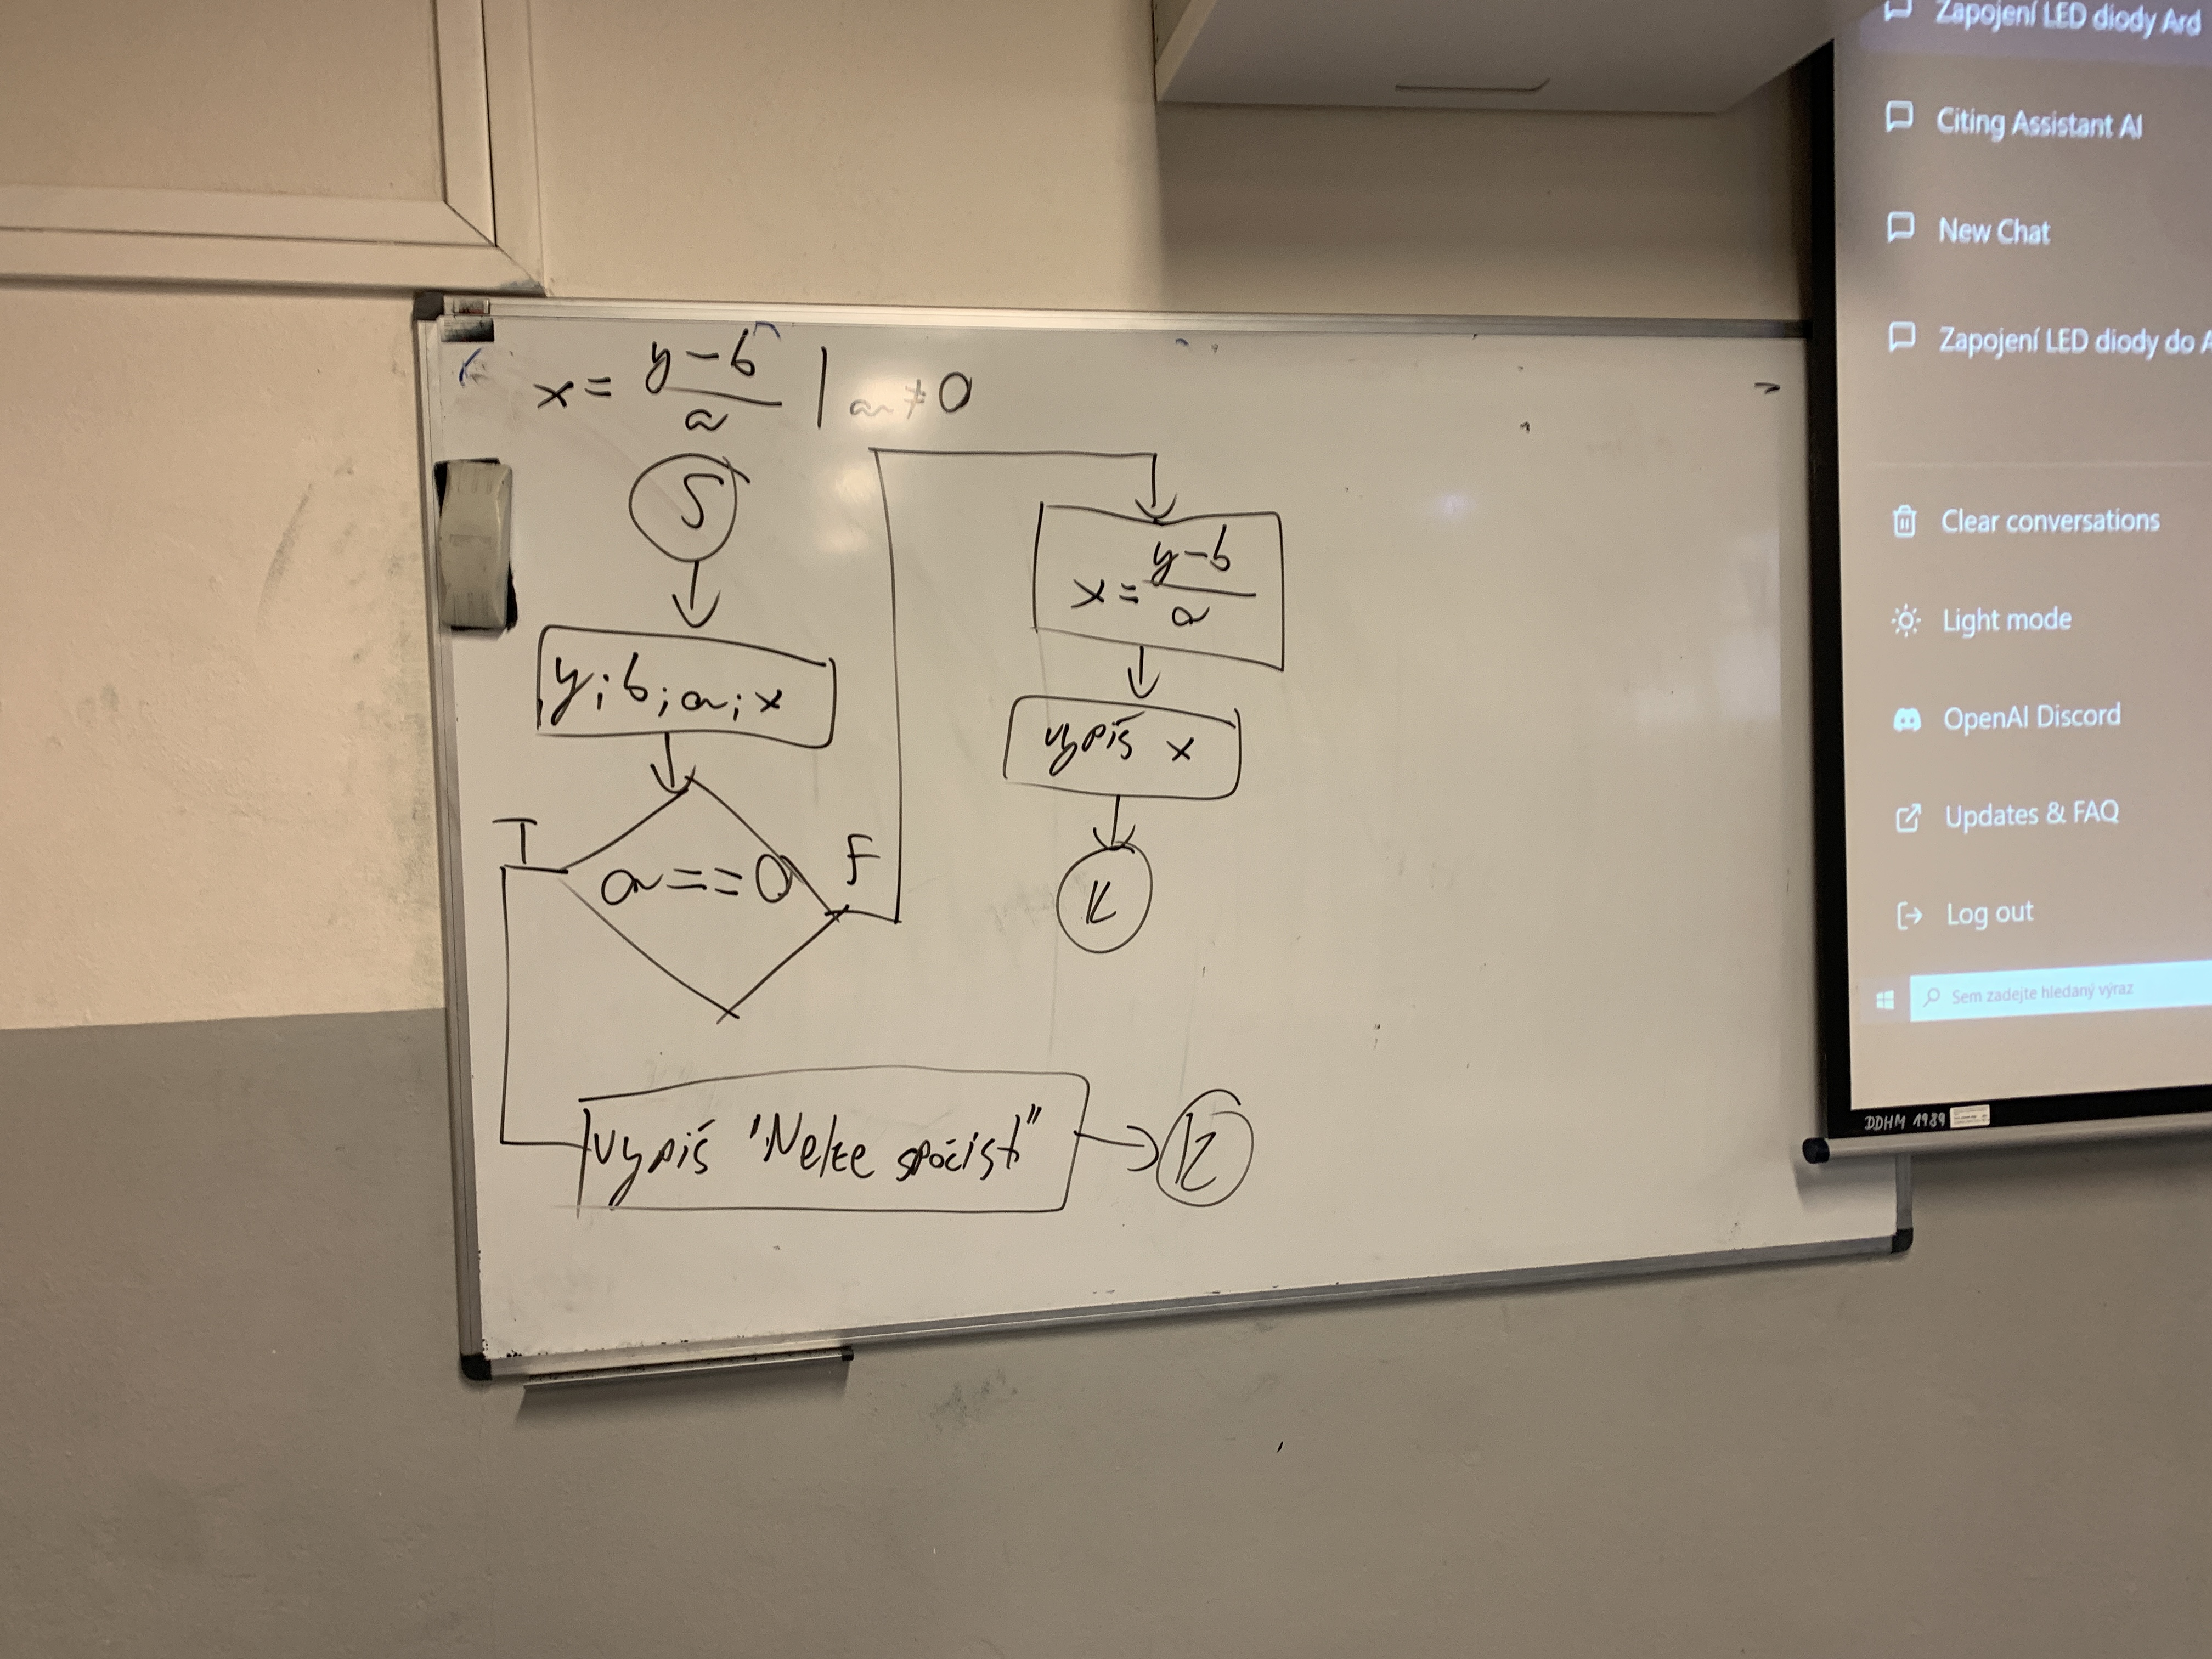 x = y-b / a | a ≠ 0
S
y; b; a; x
T
a == 0
F
x = y-b / a
vypiš x
K
vypiš "Nelze spočíst"
K
Zapojení LED diody Ard
Citing Assistant AI
New Chat
Zapojení LED diody do A
Clear conversations
Light mode
OpenAI Discord
Updates & FAQ
Log out
Sem zadejte hledaný výraz
DDHM 1989